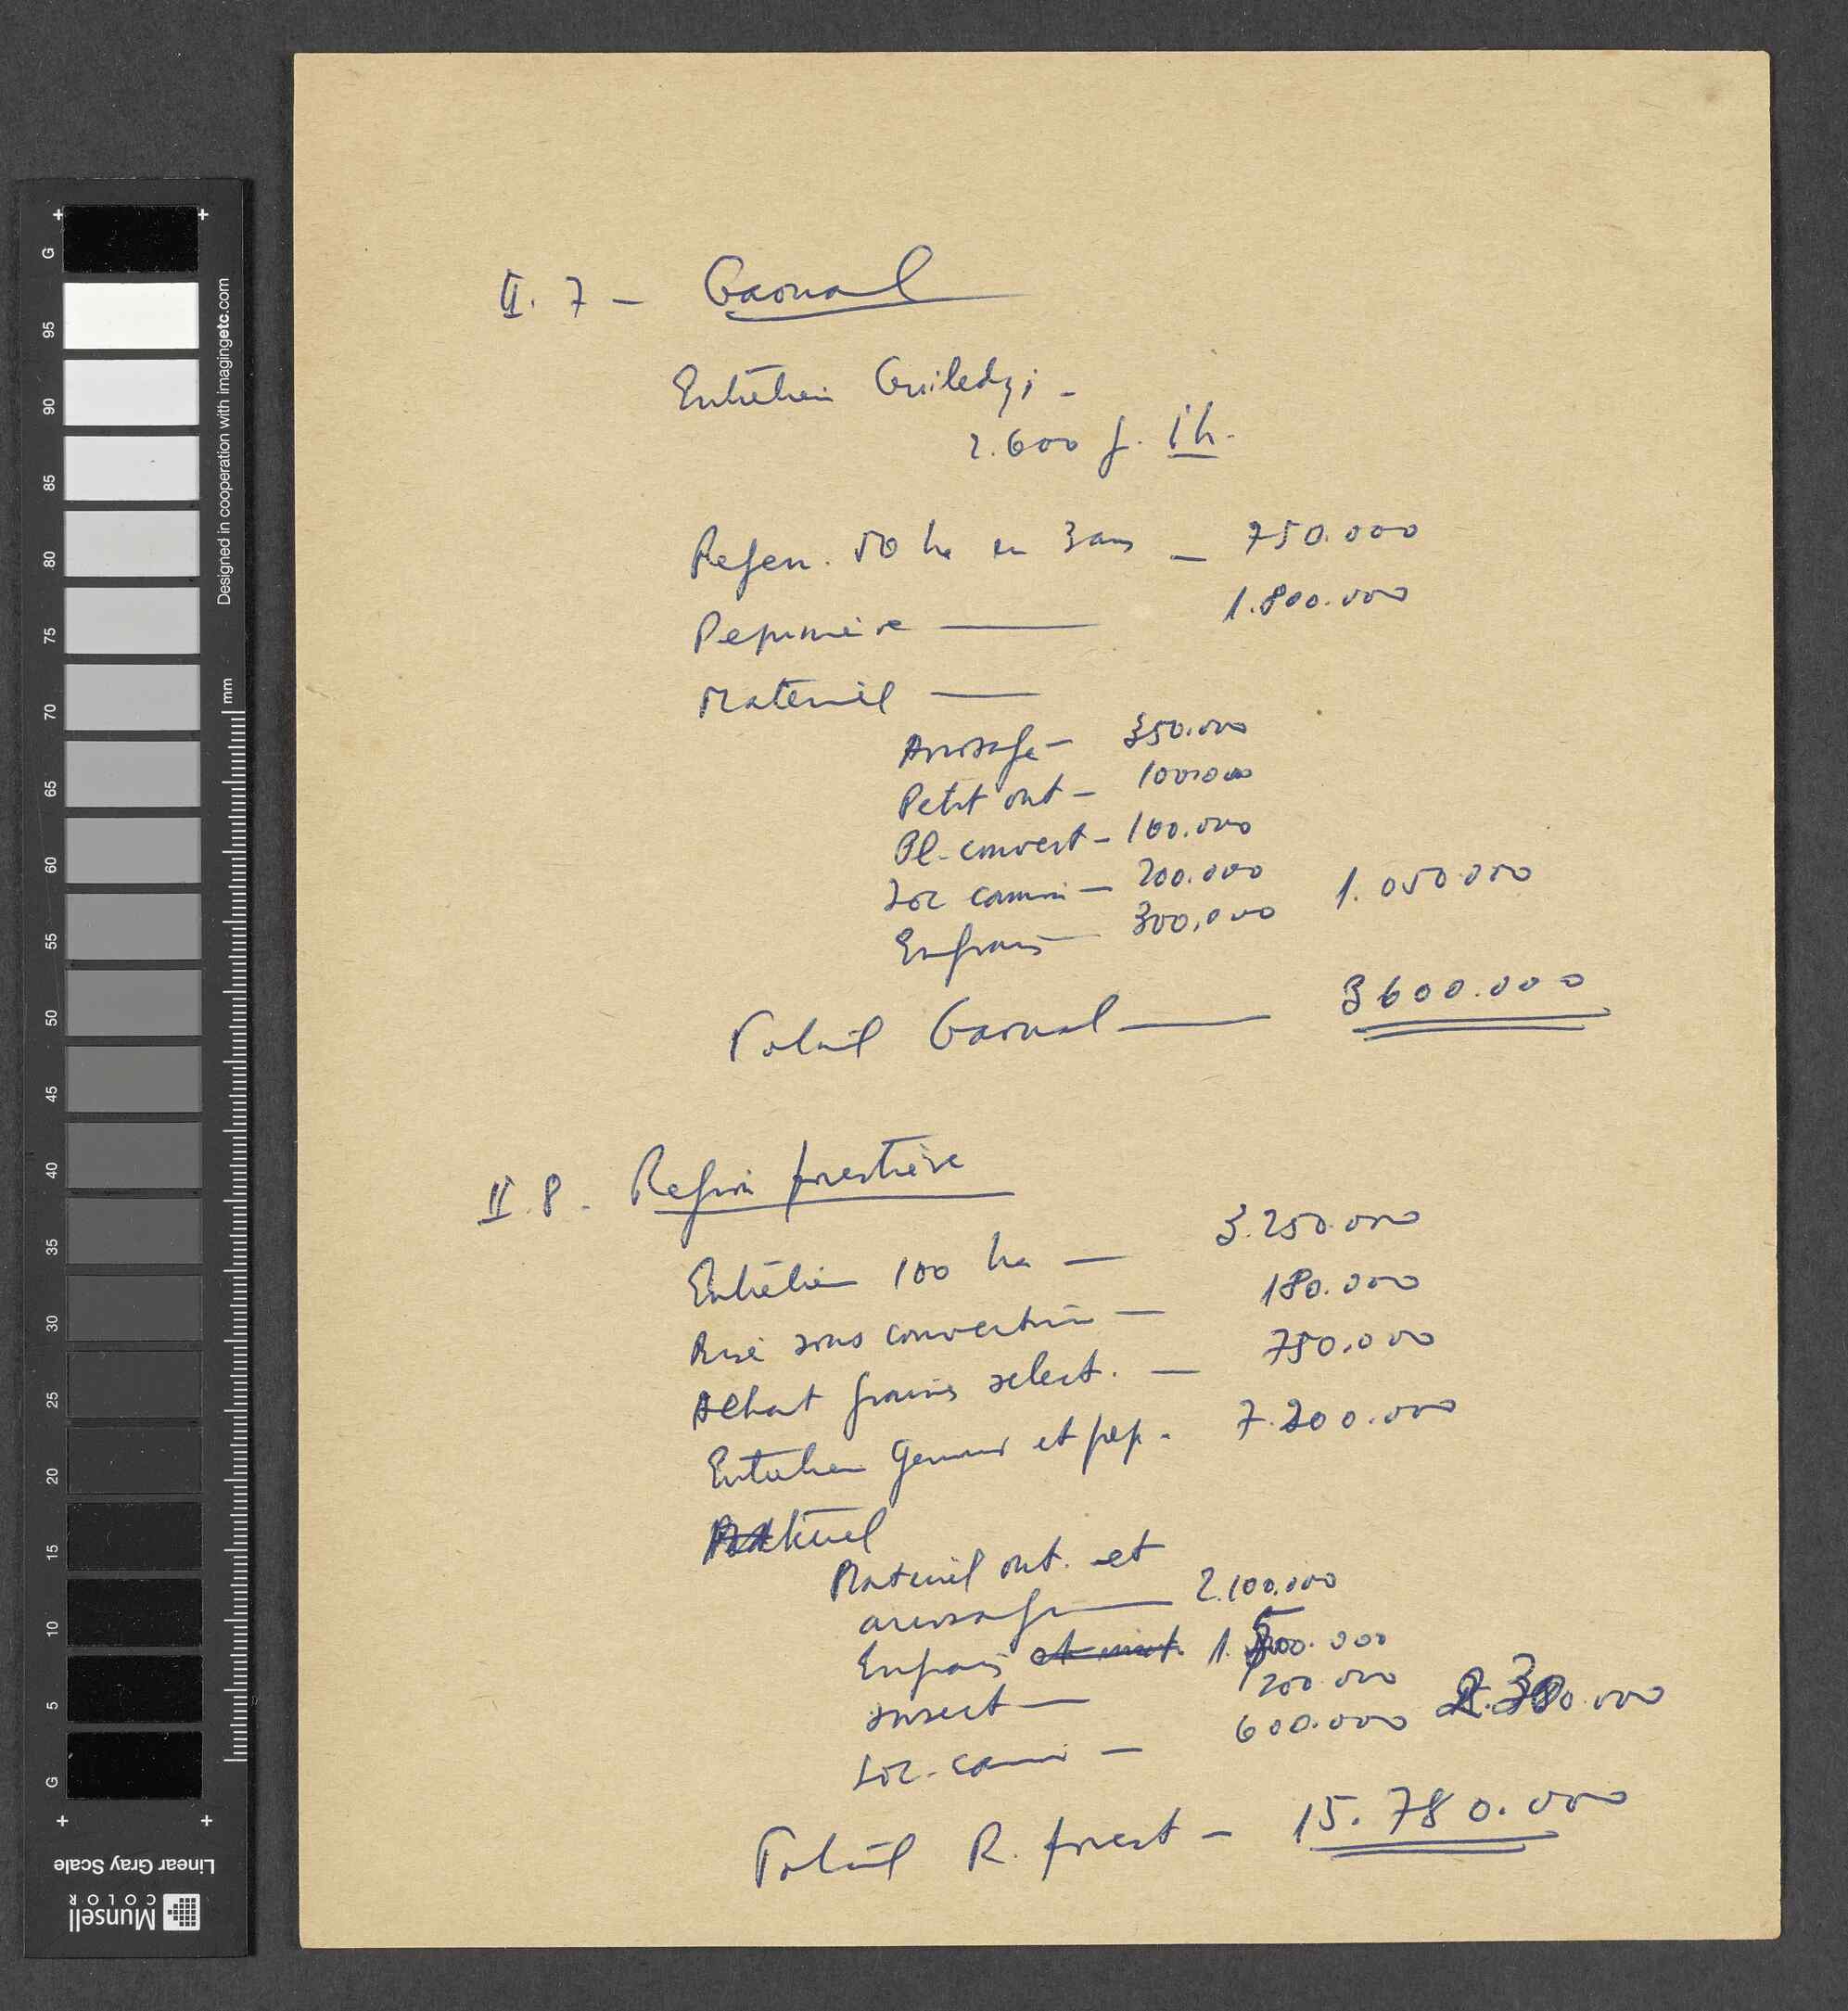 II. 7 - Gaoual
Entretien Guiledji -
2.600 f. 1h.
Regen. 50 ha en 3 ans - 750.000
Pepinière - 1.800.000
Matériel -
Arrosage - 350.000
Petit out - 100.000
Pl. couvert - 100.000
Loc camion - 200.000
Engrais - 300.000 1.050.000
Total Gaoual - 3600.000
II. 8. Region forestière
Entretien 100 ha - 3.250.000
Rué sous couverture - 180.000
Achat graines select. - 750.000
Entretien germoir et pep. 7.200.000
Matériel
Materiel out. et
arrosage 2.100.000
Engrais 1.500.000
insect - 200.000
Loc. camion - 600.000
Total R. forest - 15.780.000
Linear Gray Scale
Munsell
COLOR
Designed in cooperation with imagingetc.com
mm
G 95 90 85 80 75 70 65 60 55 50 45 40 35 30 25 20 15 10 5 G